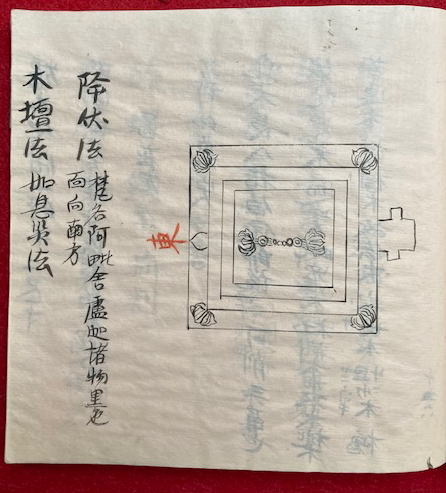 東
降伏法
梵名阿毗舍盧迦諸物黒也
面向南方
木壇法 如息災法